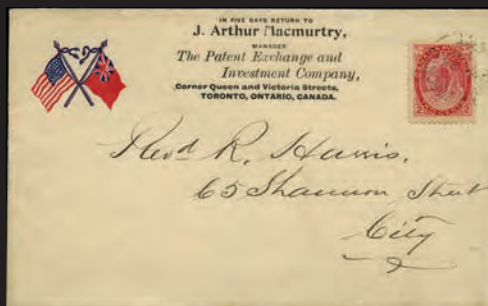 IN FIVE DAYS RETURN TO
J. Arthur Macmurtry,
MANAGER
The Patent Exchange and
Investment Company,
Corner Queen and Victoria Streets,
TORONTO, ONTARIO, CANADA.
Revd R. Harris.
65 Shannon Street
City